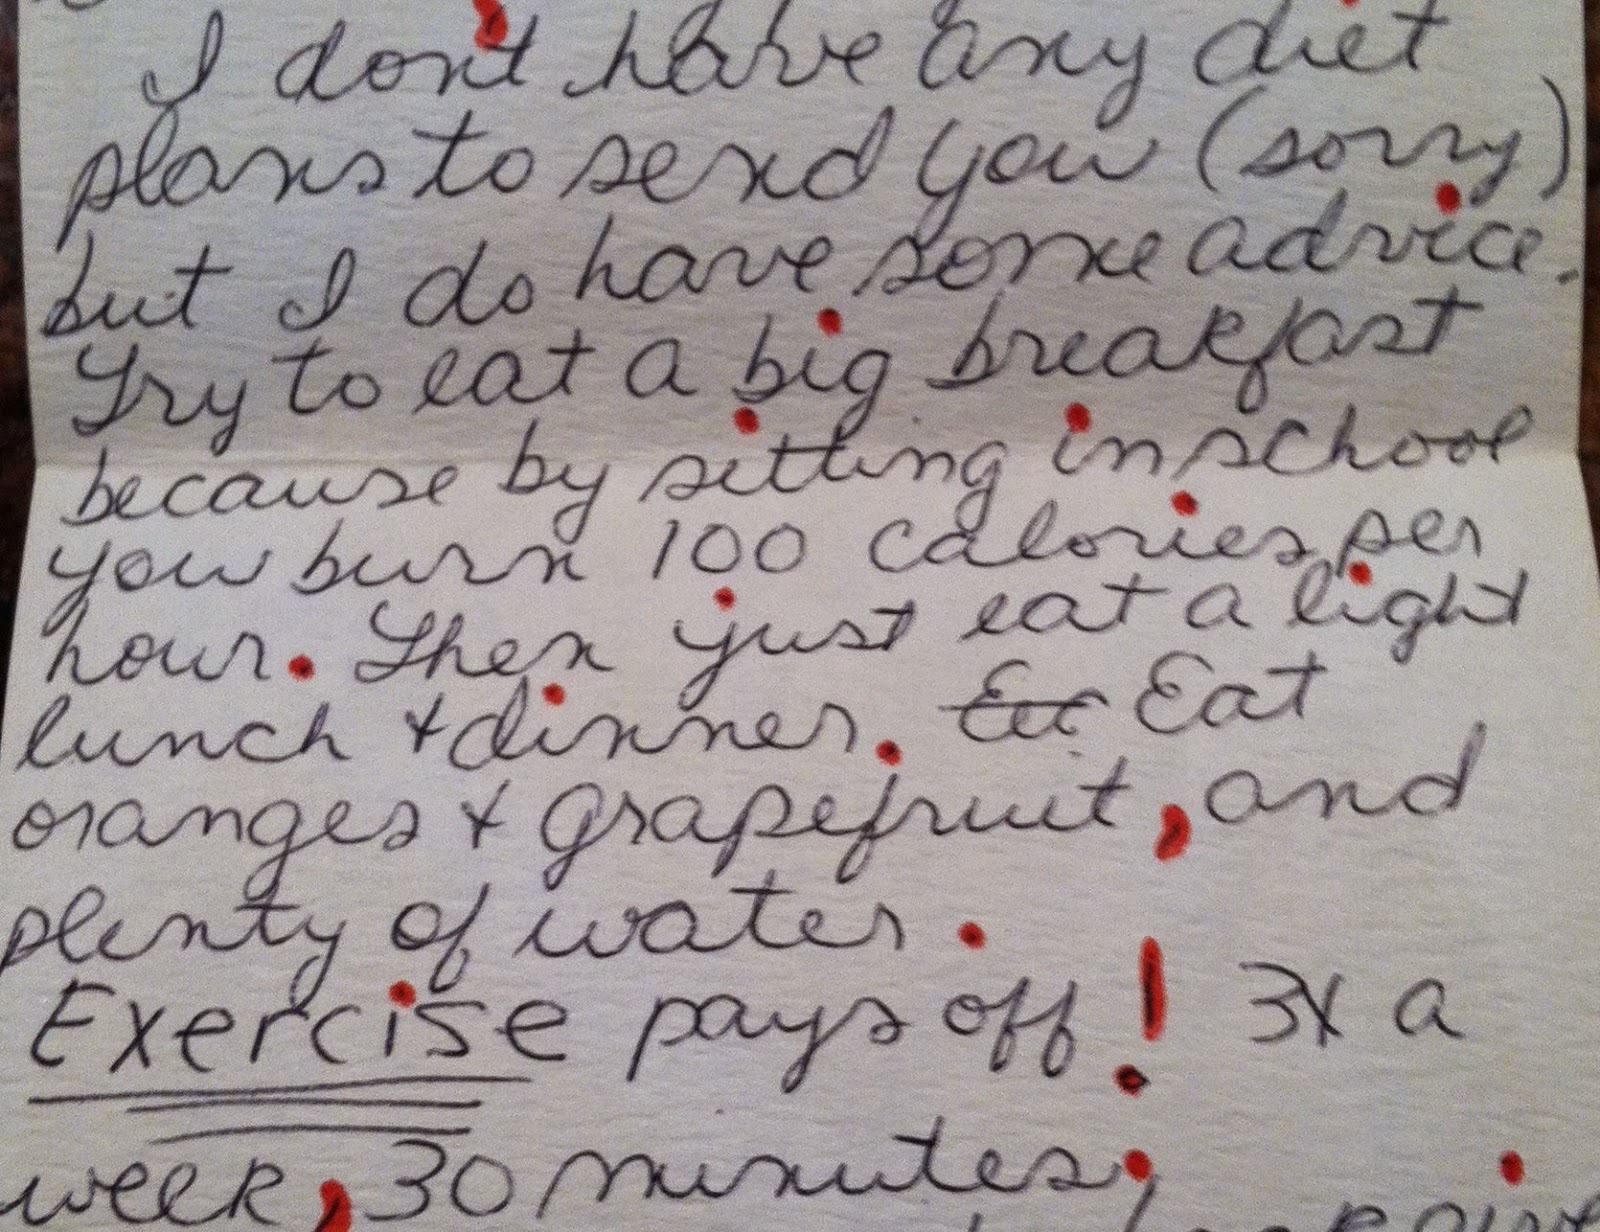 I don't have any diet
plans to send you (sorry)
but I do have some advice.
Try to eat a big breakfast
because by sitting in school
you burn 100 calories per
hour. Then just eat a light
lunch & dinner. Eat
oranges & grapefruit, and
plenty of water.
Exercise pays off! 3x a
week, 30 minutes;